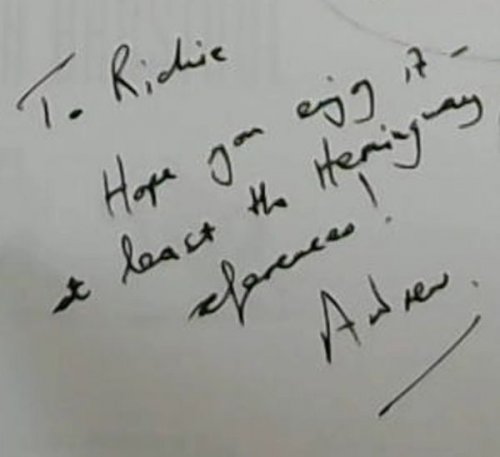 To Richie
Hope you enjoy it -
at least the Hemingway
references!
Andrew.